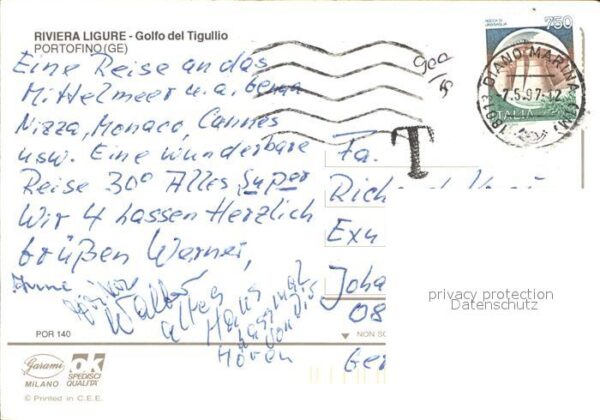 RIVIERA LIGURE - Golfo del Tigullio
PORTOFINO (GE)
Eine Reise an das
Mittelmeer u.a. Genua
Nizza, Monaco, Cannes
usw. Eine wunderbare
Reise 30° Alles Super
Wir 4 lassen Herzlich
Grüßen Werner,
Anne
Walter
alter
Hans
lass mal
von dir
Hören
POR 140
Garami
MILANO
OK
SPEDISCI
QUALITA'
© Printed in C.E.E.
900
T
ROCCA DI
750
ITALIA
18013 DIANO MARINA (IM)
-7.5.97-12
Fa.
Joha
08
NON SC
privacy protection
Datenschutz